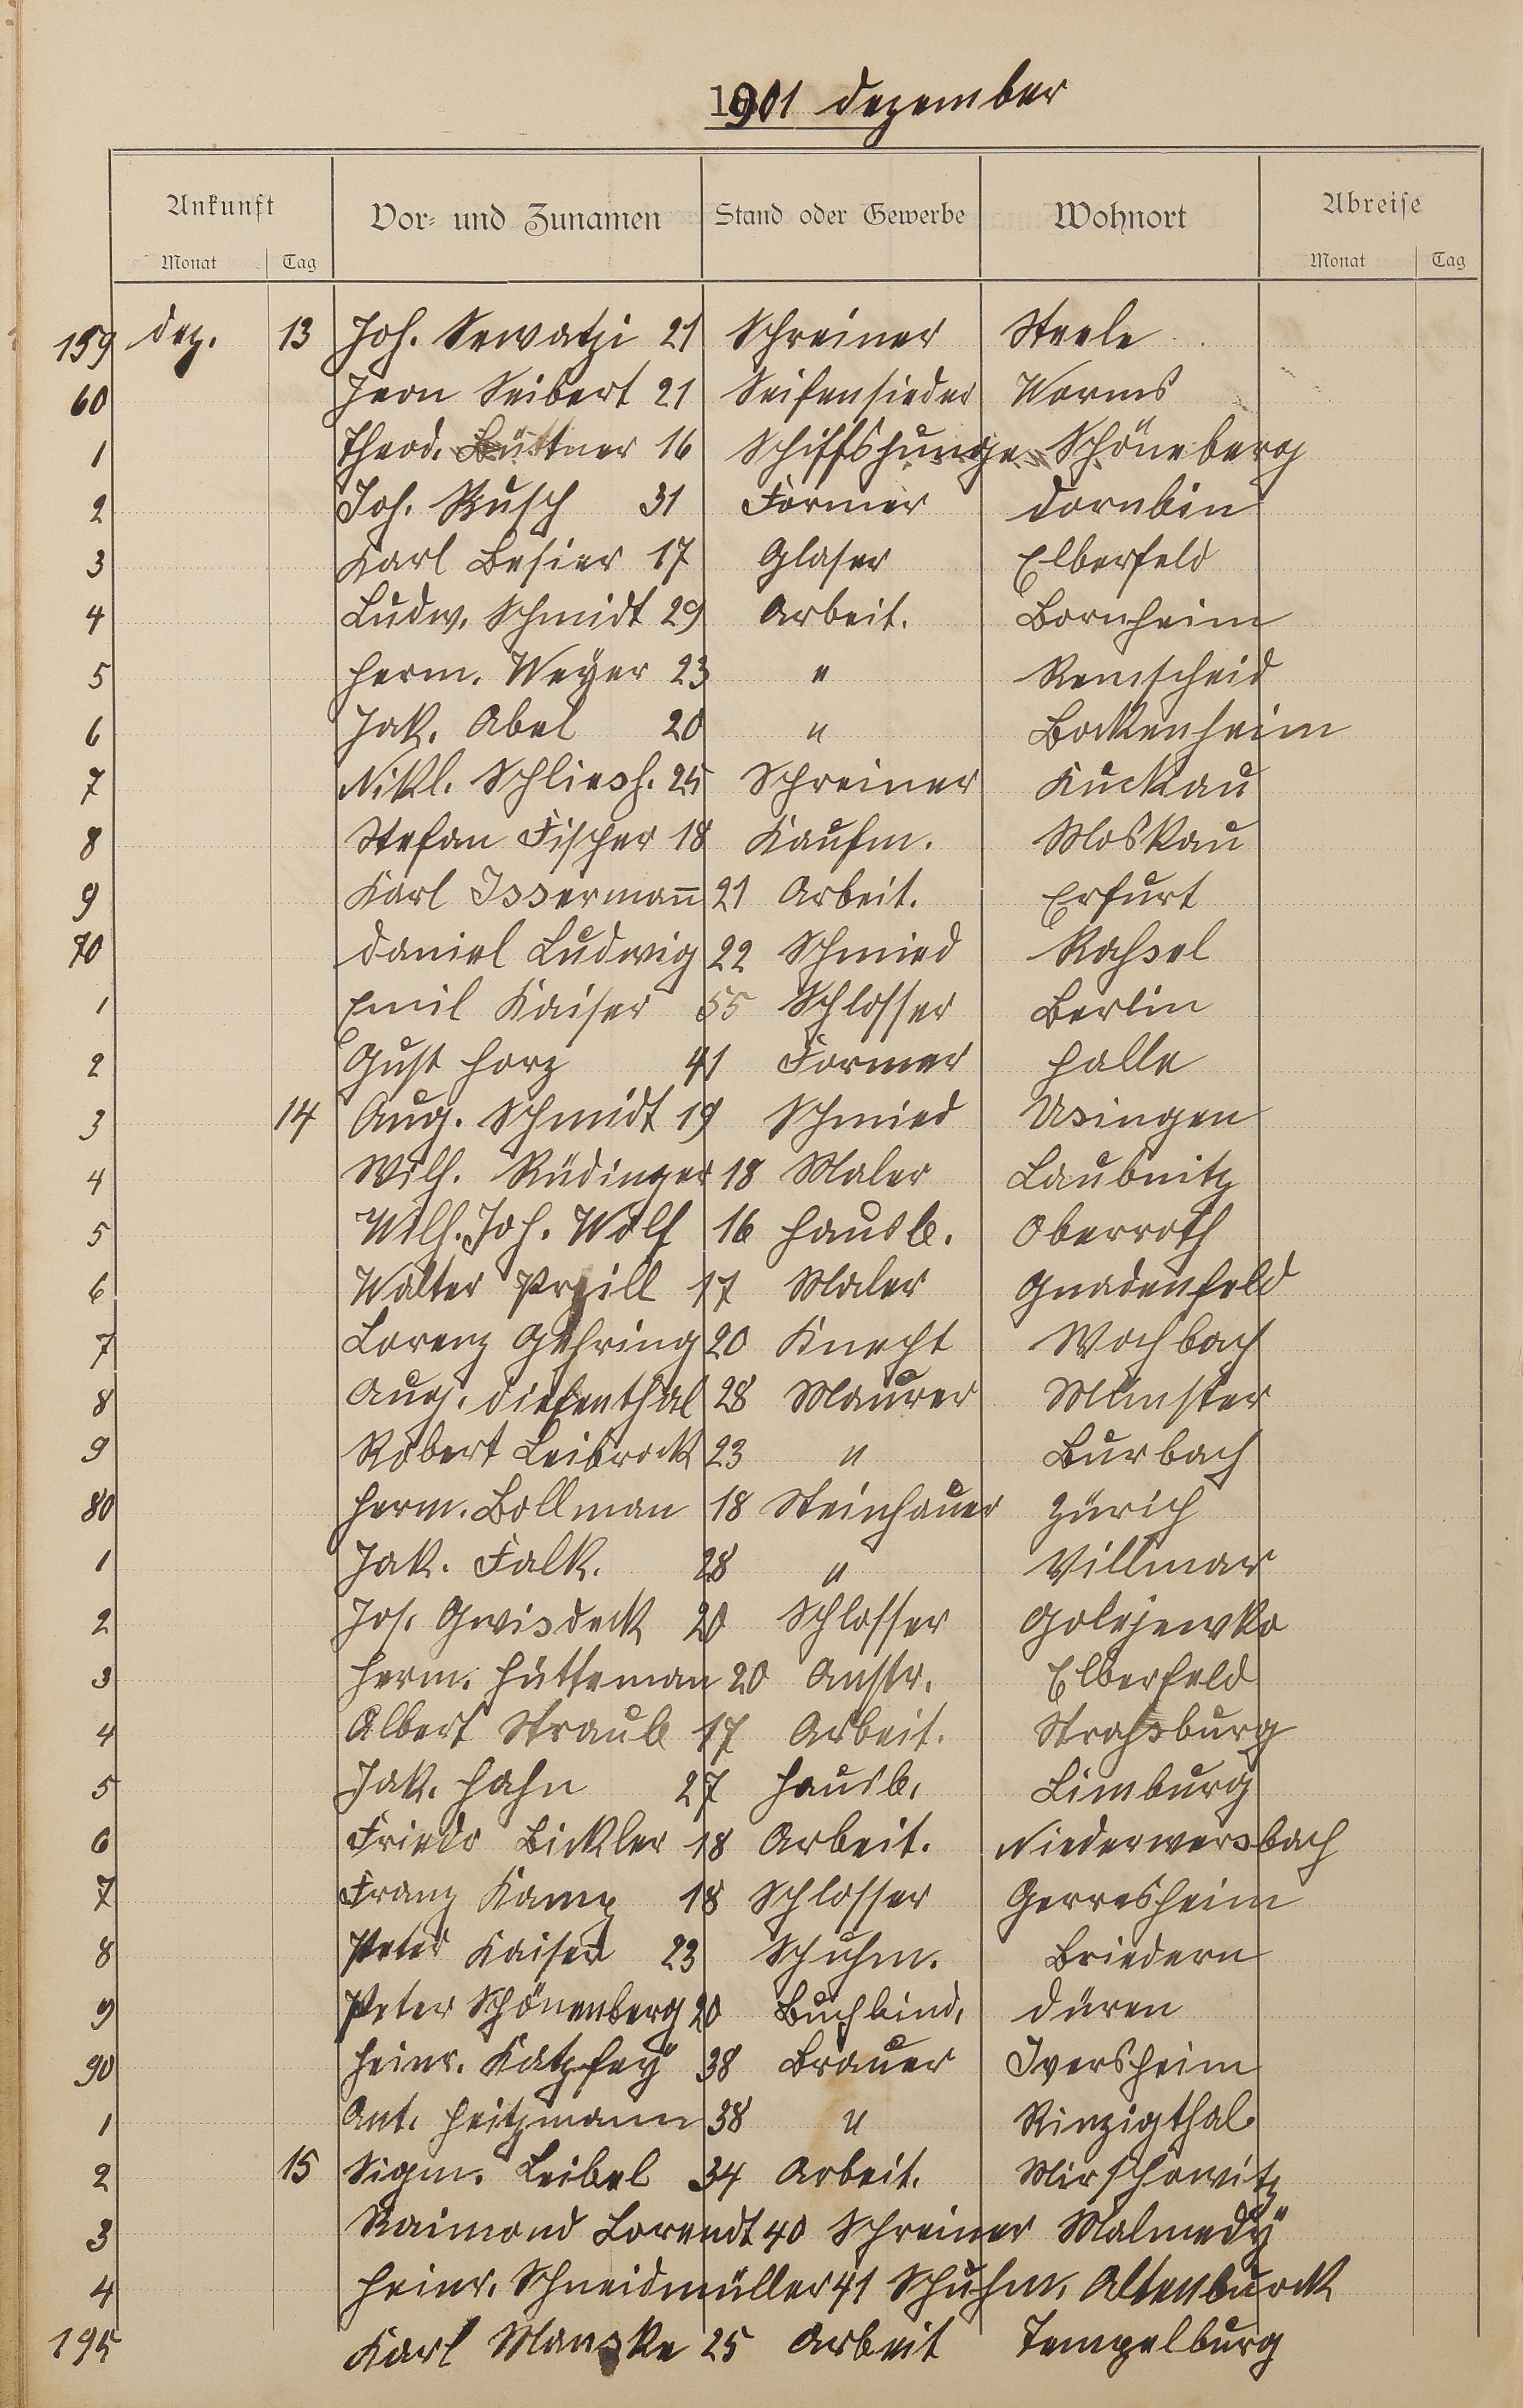 1901 Dezember
Ankunft Vor- und Zunamen Stand oder Gewerbe Wohnort Abreise
Monat Tag Monat Tag
159 Dez. 13 Joh. Sewatzi 21 Schreiner Steele
60 Jean Seibert 21 Seifensieder Worms
1 Theod. Büttner 16 Schiffsjunge Schöneberg
2 Joh. Rusch 31 Former Dornbin
3 Karl Besier 17 Glaser Elberfeld
4 Ludw. Schmidt 29 Arbeit. Bornheim
5 Herm. Weyer 23 " Remscheid
6 Jak. Abel 20 " Bockenheim
7 Nikl. Schliesh. 25 Schreiner Kuckau
8 Stefan Fischer 18 Kaufm. Moskau
9 Karl Issermann̄ 21 Arbeit. Erfurt
70 Daniel Ludwig 22 Schmied Kassel
1 Emil Kaiser 55 Schlosser Berlin
2 Gust Horz 41 Former Halle
3 14 Aug. Schmidt 19 Schmied Usingen
4 Wilh. Rüdinger 18 Maler Laubnitz
5 Wilh. Joh. Wolf 16 Hausb. Oberroth
6 Walter 17 Maler Gnadenfeld
7 Lorenz Gehring 20 Knecht Wochbach
8 Aug. Diefenthal 28 Maurer Münster
9 Robert Leibrock 23 " Burbach
80 Herm. Bollman 18 Steinhauer Zürich
1 Jak. Falk. 28 " Villmar
2 Jos. Gwisdeck 20 Schlosser Golejewko
3 Herm. Hütteman 20 Anstr. Elberfeld
4 Albert Straub 17 Arbeit. Strassburg
5 Jak. Hahn 27 Hausb. Limburg
6 Friedr Bickler 18 Arbeit. Niederwersbach
7 Franz Kamp 18 Schlosser Gerresheim
8 Peter Kaiser 23 Schuhm. Briedern
9 Peter Schönenberg 20 Buchbind. Düren
90 Heinr. Katzfey 38 Brauer Iversheim
1 Ant. Heitzmann 38 " Kinzigthal
2 15 Sigm. Leibel 34 Arbeit. Mirschowitz
3 Raimond Lorendt 40 Schreiner Malmedy
4 Heinr. Schneidmüller 41 Schuhm. Altenburck
195 Karl Manske 25 Arbeit Tempelburg